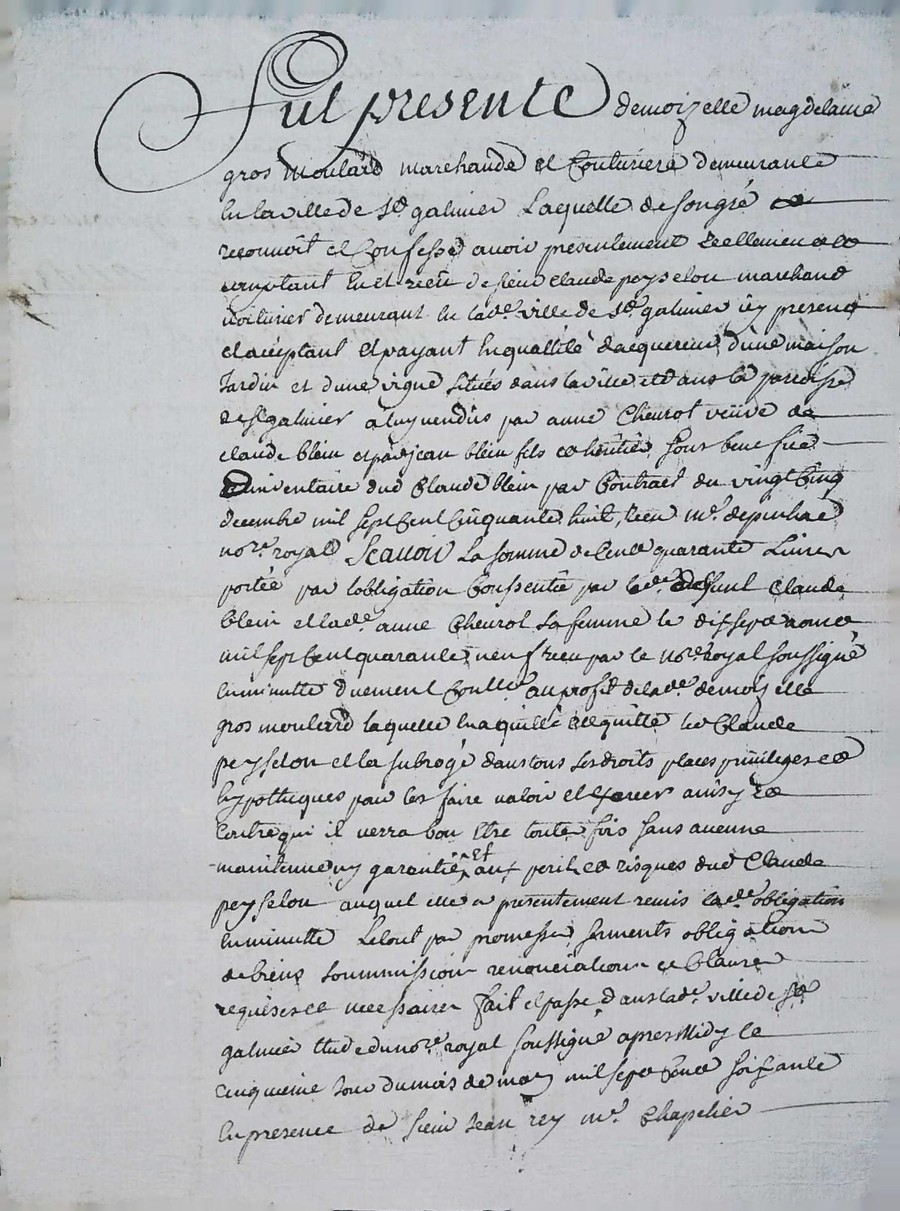 Fut presente demoizelle magdelaine
gros moulard marchande et Couturiere demeurante
En la ville de St galmier Laquelle de son gré
reconnoit et Confesse avoir presentement reellement et
comptant Eu et receu de sieur claude peyselon marchand
voiturier demeurant En lade ville de St galmier icy present
et acceptant et payant En quallité dacquereur dune maison
Jardin et dune vigne scitués dans la ville et dans la paroisse
de St galmier a luy vendus par anne Cheurot veuve de
claude blein et par jean blein fils et heritier sous benefice
dinventaire dud Claude blein par Contract du vingt Cinq
decembre mil sept Cent Cinquante huit, receu me depinhac
nore royal Scavoir La somme de Cent quarante Livres
portée par lobligation Conssentie par led deffunt Claude
blein et lade anne Cheurot sa femme le dix sept
mil sept Cent quarante neuf receu par le nore royal soussigné
En minutte duement Controllé au profit de lade demoizelle
gros moulard laquelle En a quitté et quitte led Claude
peyselon et la subrogé dans tous ses droits places privileges et
hypotheques pour les faire valoir et Exercer ainsy et
Contre qui il verra bon Etre toutte fois sans aucune
maintenue ny garentie et aux perils et risques dud Claude
peyselon auquel elle a presentement remis lade obligation
En minutte Le tout par promesses serments obligation
de biens soummission renonciation et Clauses
requises et necessaires fait et passé dans lade ville de St
galmier Etude du nore royal soussigné apres Midy le
cinquieme Jour du mois de may mil sept Cent soixante
En presence de sieur Jean rey me Chapelier